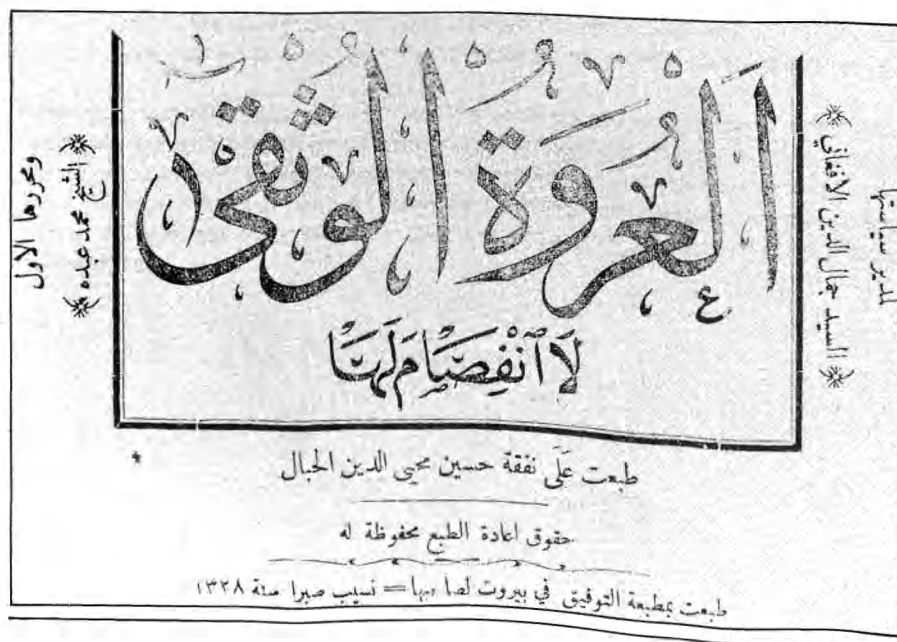 لمدير سياستها
﴿السيد جمال الدين الافغاني﴾
اَلْعُرْوَةُ الْوُثْقَى
لَا ٱنْفِصَامَ لَهَا
ومحررها الاول
﴿الشيخ محمد عبده﴾
طبعت عَلَى نفقة حسين محيي الدين الحبال *
حقوق اعادة الطبع محفوظة له
طبعت بمطبعة التوفيق في بيروت = نسيب صبرا سنة ١٣٢٨